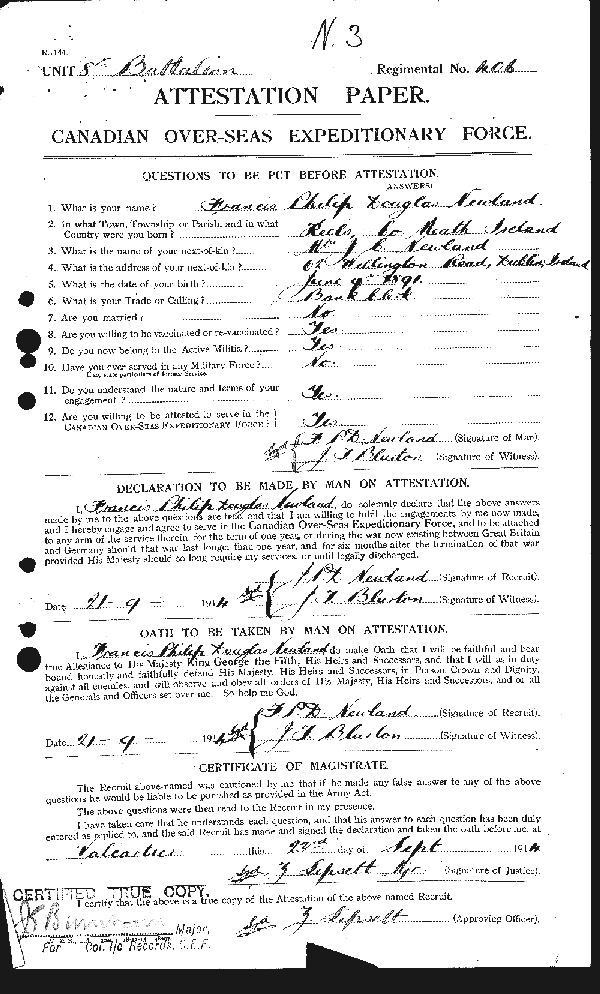 N. 3
UNIT 8th Battalion Regimental No.
ATTESTATION PAPER.
CANADIAN OVER-SEAS EXPEDITIONARY FORCE.
QUESTIONS TO BE PUT BEFORE ATTESTATION.
(ANSWERS)
1. What is your name? Francis Philip Douglas Newland
2. In what Town, Township or Parish, and in what
Country were you born? Kells, Co Meath Ireland
3. What is the name of your next-of-kin? J C Newland
4. What is the address of your next-of-kin? Wellington Road, Dublin, Ireland
5. What is the date of your birth? June 9th 1891
6. What is your Trade or Calling? Bank Clerk
7. Are you married? No
8. Are you willing to be vaccinated or re-vaccinated? Yes
9. Do you now belong to the Active Militia? Yes
10. Have you ever served in any Military Force? No.
If so, state particulars of former Service
11. Do you understand the nature and terms of your
engagement? Yes.
12. Are you willing to be attested to serve in the
CANADIAN OVER-SEAS EXPEDITIONARY FORCE? Yes
F P D Newland (Signature of Man).
J F Bluston (Signature of Witness).
DECLARATION TO BE MADE BY MAN ON ATTESTATION.
I, Francis Philip Douglas Newland, do solemnly declare that the above answers
made by me to the above questions are true, and that I am willing to fulfil the engagements by me now made,
and I hereby engage and agree to serve in the Canadian Over-Seas Expeditionary Force, and to be attached
to any arm of the service therein, for the term of one year, or during the war now existing between Great Britain
and Germany should that war last longer than one year, and for six months after the termination of that war
provided His Majesty should so long require my services, or until legally discharged.
F P D Newland (Signature of Recruit).
Date 21-9- 1914 J F Bluston (Signature of Witness).
OATH TO BE TAKEN BY MAN ON ATTESTATION.
I, Francis Philip Douglas Newland do make Oath that I will be faithful and bear
true Allegiance to His Majesty King George the Fifth, His Heirs and Successors, and that I will as in duty
bound honestly and faithfully defend His Majesty, His Heirs and Successors, in Person, Crown and Dignity,
against all enemies, and will observe and obey all orders of His Majesty, His Heirs and Successors, and of all
the Generals and Officers set over me. So help me God.
F P D Newland (Signature of Recruit).
Date 21-9- 1914 J F Bluston (Signature of Witness).
CERTIFICATE OF MAGISTRATE.
The Recruit above-named was cautioned by me that if he made any false answer to any of the above
questions he would be liable to be punished as provided in the Army Act.
The above questions were then read to the Recruit in my presence.
I have taken care that he understands each question, and that his answer to each question has been duly
entered as replied to, and the said Recruit has made and signed the declaration and taken the oath before me, at
Valcartier this 22nd day of Sept 1914
Lipsett (Signature of Justice).
CERTIFIED TRUE COPY.
I certify that the above is a true copy of the Attestation of the above named Recruit.
Lipsett (Approving Officer).
Major,
For Col. i/c Records, C.E.F.